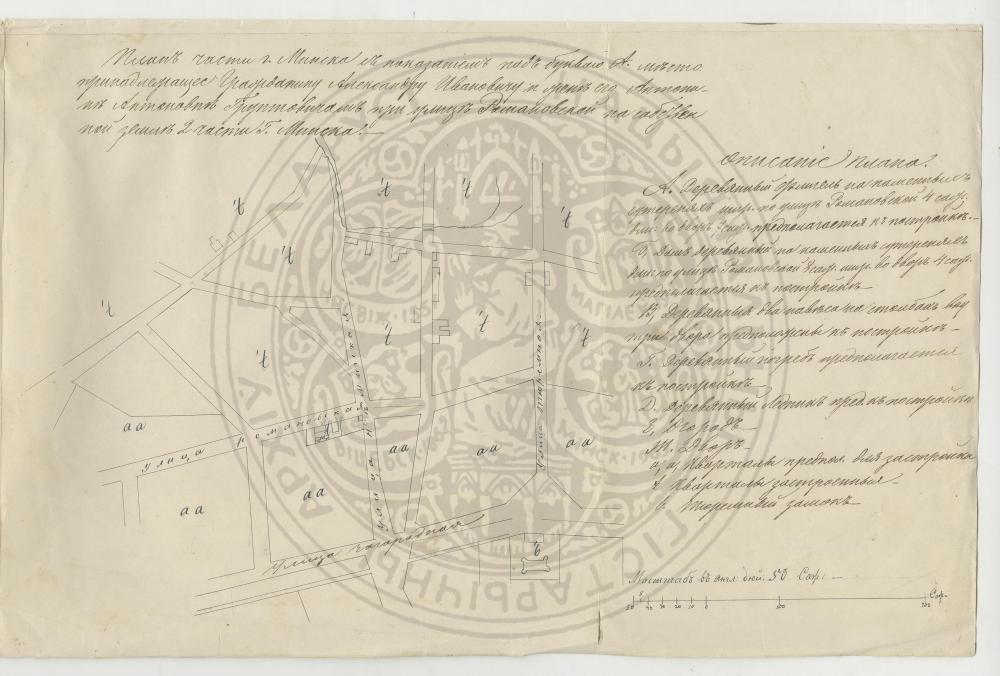 Планъ части г. Минска съ показаніемъ подъ буквою А. мѣсто
принадлежащее Гражданину Александру Ивановичу и женѣ его Антони-
нѣ Антоновнѣ при улицѣ Романовской на
ной землѣ 2 части Г. Минска.
Описаніе плана.
А. Деревянный флигель на каменныхъ
шир. по улицѣ Романовской 4 саж.
дл. во дворъ 7 саж. предполагается къ постройкѣ.
домъ деревянный на каменныхъ
длин. по улицѣ Романовской 8 саж. шир. во дворъ 4 саж.
предполагается къ постройкѣ
В, Деревянныя два навѣса на столбахъ вну
три двора предположены къ постройкѣ
Г. Деревянный погребъ предполагается
къ постройкѣ
Д. Деревянный Ледникъ пред. къ постройки
Е, Огородъ
Ж. Дворъ
а, а, Кварталы предпол. для застройки
Кварталы застроенныя
тюремный замокъ
Масштабъ въ англ. дюй. 50 Саж.
50 40 30 20 10 0 100 200 Саж.
улица
романовская
аа
аа
аа
аа
аа
аа
улица
улица тюремная
улица загородная
МІНСК